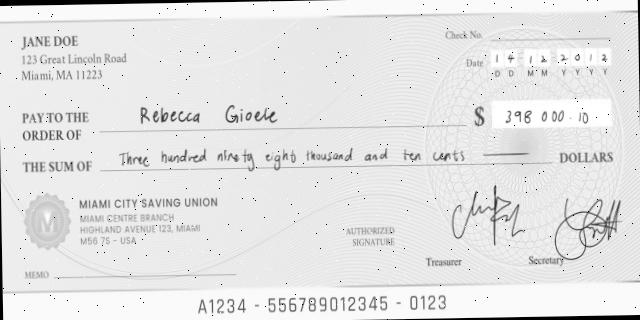 JANE DOE
123 Great Lincoln Road
Miami, MA 11223
Check No.
Date 14 12 2012
D D M M Y Y Y Y
PAY TO THE ORDER OF Rebecca Gioele $ 398 000.10
THE SUM OF Three hundred ninety eight thousand and ten cents DOLLARS
M
MIAMI CITY SAVING UNION
MIAMI CENTRE BRANCH
HIGHLAND AVENUE 123, MIAMI
M56 7S - USA
AUTHORIZED SIGNATURE
Treasurer
Secretary
MEMO
A1234 - 556789012345 - 0123